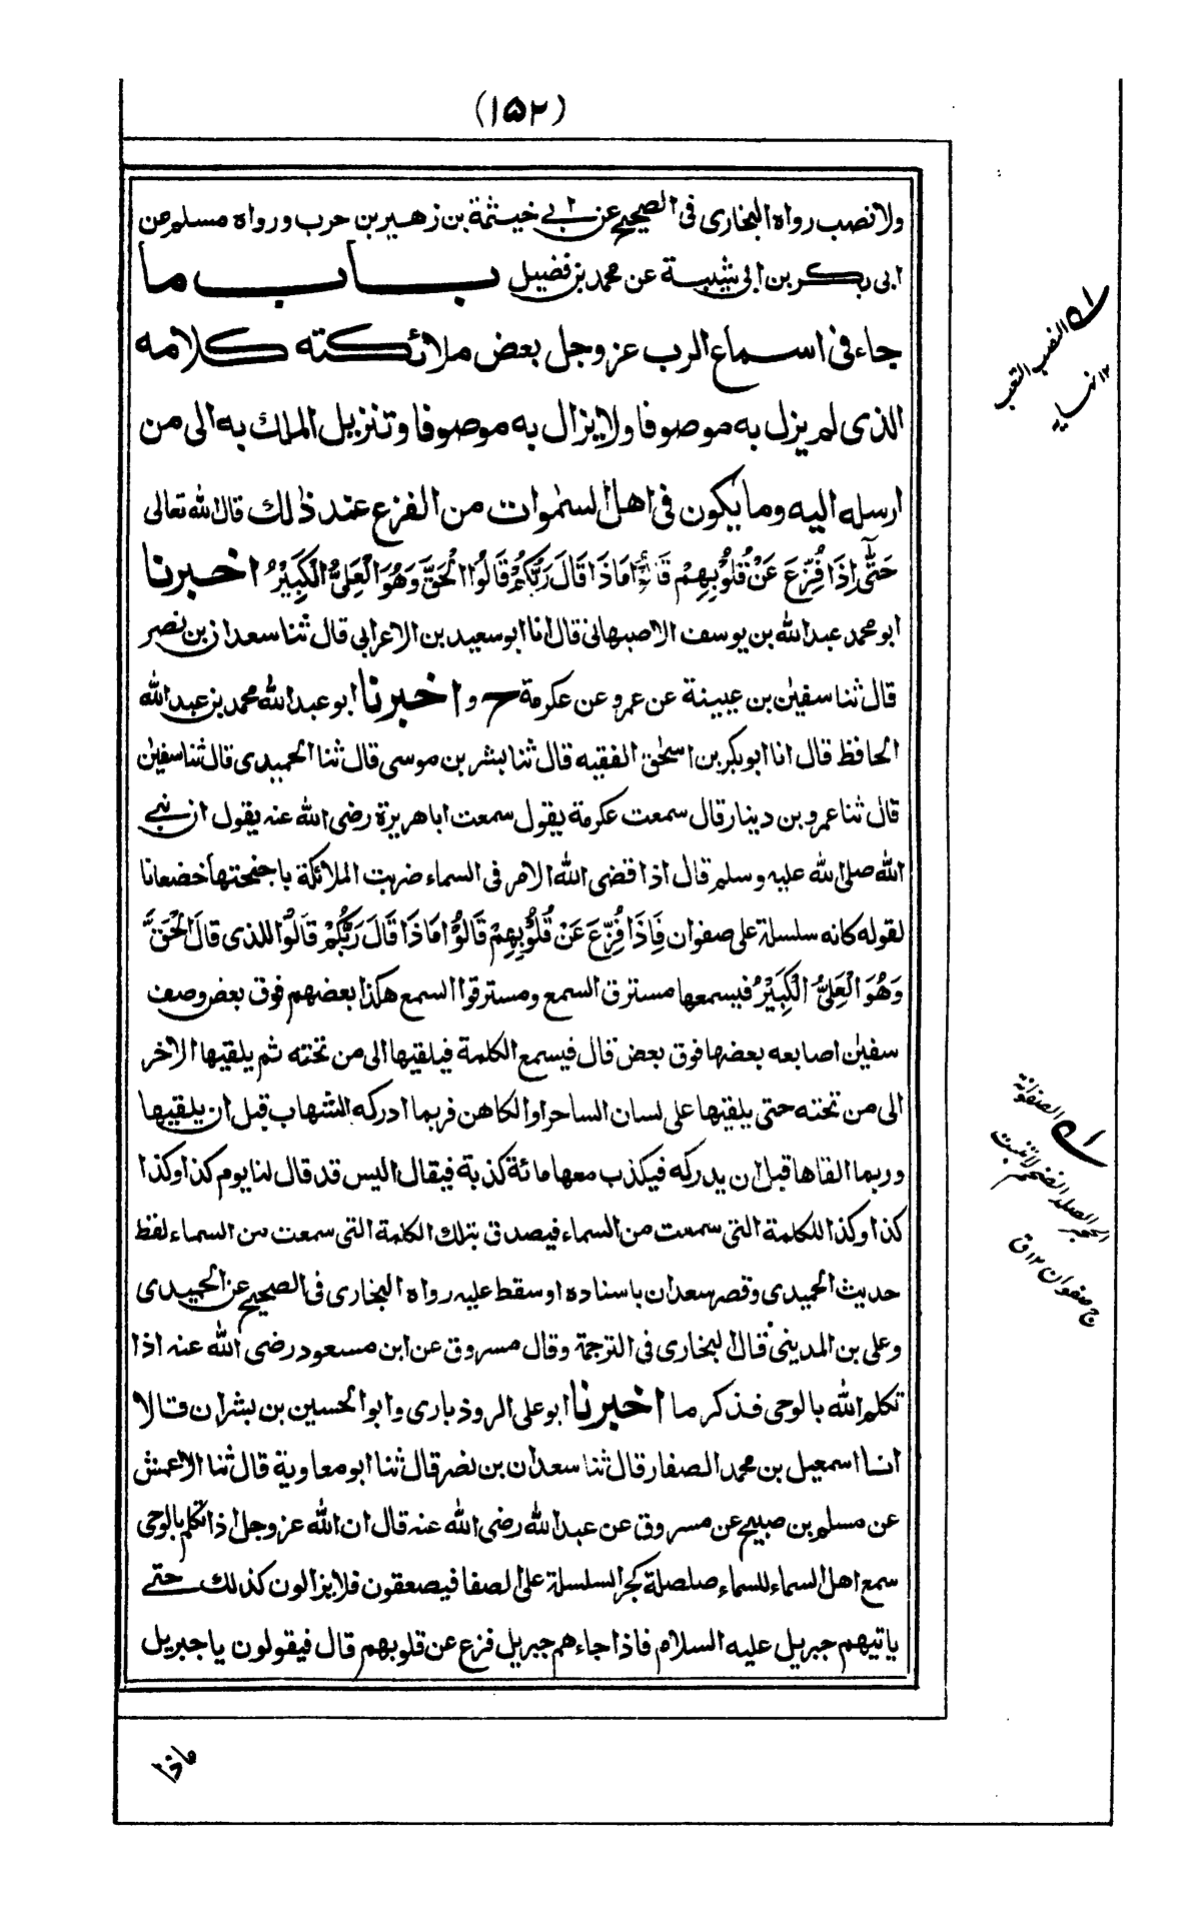 (١٥٢)
ولا نصب رواه البخارى فى الصحيح عن ابى خيثمة بن زهير بن حرب ورواه مسلم عن
ابى بكر بن ابى شيبة عن محمد بن فضيل باب ما
جاء فى اسماع الرب عز وجل بعض ملائكته كلامه
الذى لم يزل به موصوفا ولا يزال به موصوفا وتنزيل الملك به الى من
ارسله اليه وما يكون فى اهل السموات من الفزع عند ذلك قال الله تعالى
حَتّٰى اِذَا فُزِّعَ عَنْ قُلُوْبِهِمْ قَالُوْا مَاذَا قَالَ رَبُّكُمْ قَالُوا الْحَقَّ وَهُوَ الْعَلِىُّ الْكَبِيْرُ اخبرنا
ابو محمد عبد الله بن يوسف الاصبهانى قال انا ابو سعيد بن الاعرابى قال ثنا سعدان بن نصر
قال ثنا سفيٰن بن عيينة عن عمرو عن عكرمة ح و اخبرنا ابو عبد الله محمد بن عبد الله
الحافظ قال انا ابو بكر بن اسحٰق الفقيه قال ثنا بشر بن موسى قال ثنا الحميدى قال ثنا سفيٰن
قال ثنا عمرو بن دينار قال سمعت عكرمة يقول سمعت ابا هريرة رضى الله عنه يقول ان نبى
الله صلى الله عليه وسلم قال اذا قضى الله الامر فى السماء ضربت الملائكة باجنحتها خضعانا
لقوله كانه سلسلة على صفوان فَاِذَا فُزِّعَ عَنْ قُلُوْبِهِمْ قَالُوْا مَاذَا قَالَ رَبُّكُمْ قَالُوْا للذى قَالَ الْحَقَّ
وَهُوَ الْعَلِىُّ الْكَبِيْرُ فيسمعها مسترق السمع ومسترقوا السمع هكذا بعضهم فوق بعض وصف
سفيٰن اصابعه بعضها فوق بعض قال فيسمع الكلمة فيلقيها الى من تحته ثم يلقيها الاخر
الى من تحته حتى يلقيها على لسان الساحر او الكاهن فربما ادركه الشهاب قبل ان يلقيها
وربما القاها قبل ان يدركه فيكذب معها مائة كذبة فيقال اليس قد قال لنا يوم كذا وكذا
كذا وكذا للكلمة التى سمعت من السماء فيصدق بتلك الكلمة التى سمعت من السماء لفظ
حديث الحميدى وقصر سعدان باسناده او سقط عليه رواه البخارى فى الصحيح عن الحميدى
وعلى بن المدينى قال البخارى فى الترجمة وقال مسروق عن ابن مسعود رضى الله عنه اذا
تكلم الله بالوحى فذكر ما اخبرنا ابو على الروذبارى وابو الحسين بن بشران قالا
انا اسمعيل بن محمد الصفار قال ثنا سعدان بن نصر قال ثنا ابو معاوية قال ثنا الاعمش
عن مسلم بن صبيح عن مسروق عن عبد الله رضى الله عنه قال ان الله عز وجل اذا تكلم بالوحى
سمع اهل السماء للسماء صلصلة كجر السلسلة على الصفا فيصعقون فلا يزالون كذلك حتى
ياتيهم جبريل عليه السلام فاذا جاءهم جبريل فزع عن قلوبهم قال فيقولون يا جبريل
ماذا
له النصب التعب
١٢ نهايه
له الصفوانة
الحجر الصلد الضخم لا تنبت
ج صفوان ١٢ ق